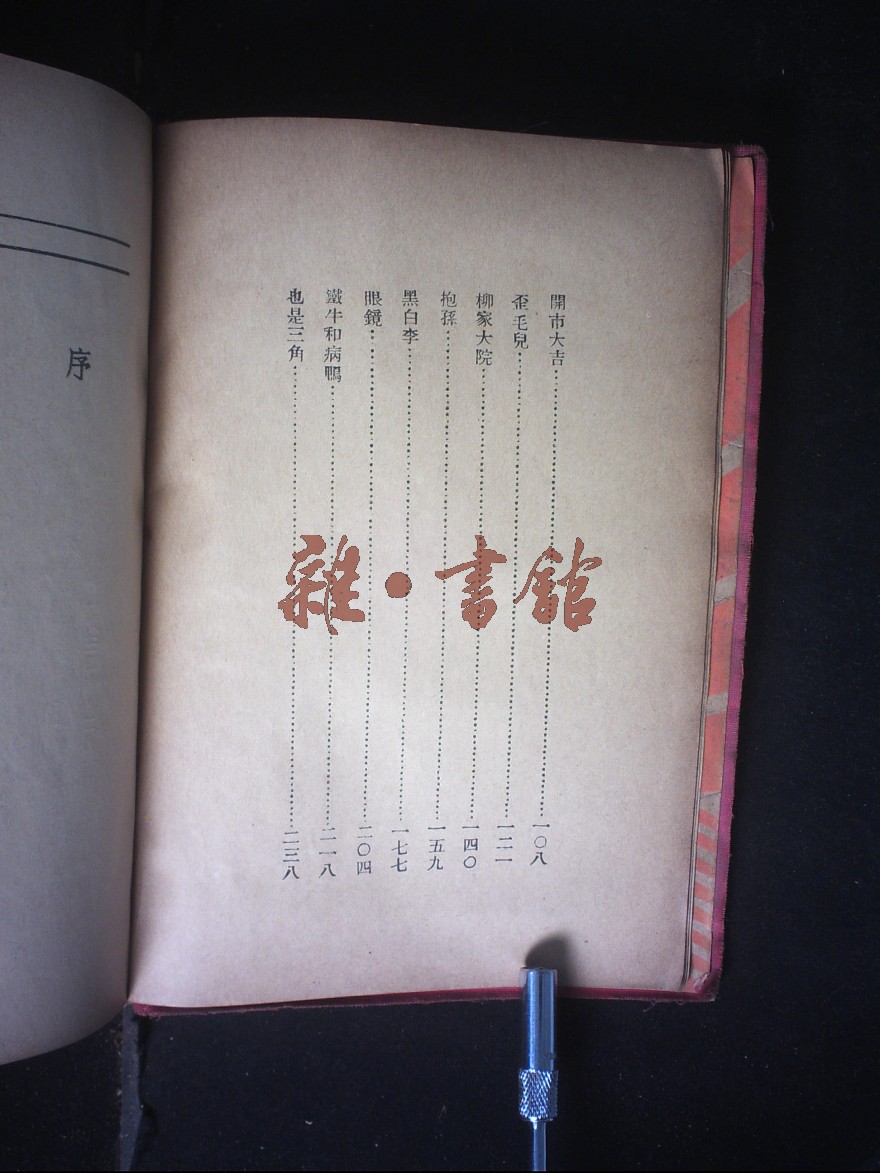 開市大吉……一〇八
歪毛兒……一二一
柳家大院……一四〇
抱孫……一五九
黑白李……一七七
眼鏡……二〇四
鐵牛和病鴨……二一八
也是三角……二三八
序
雜·書館